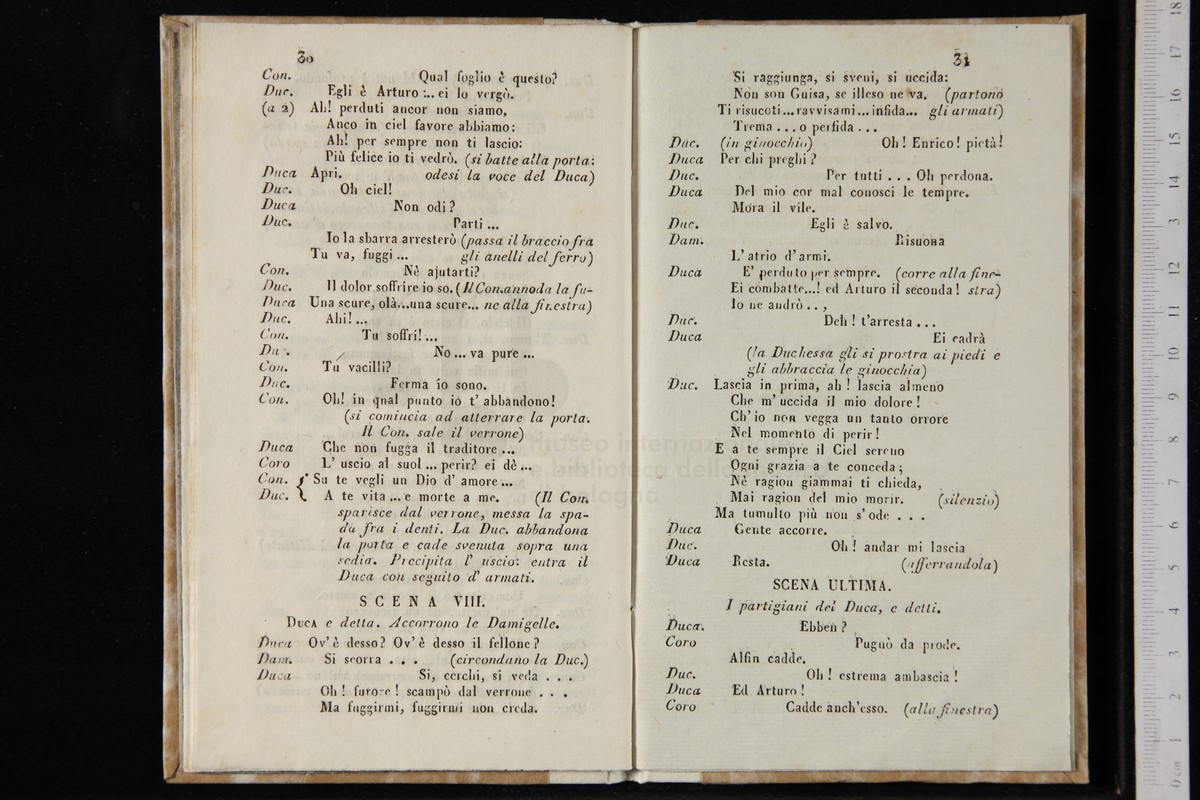 30
Con. Qual foglio è questo?
Duc. Egli è Arturo :.. ei lo vergò.
(a 2) Ah! perduti ancor non siamo,
Anco in ciel favore abbiamo:
Ah! per sempre non ti lascio:
Più felice io ti vedrò. (si batte alla porta:
Duca Apri. odesi la voce del Duca)
Duc. Oh ciel!
Duca Non odi?
Duc. Parti ...
Io la sbarra arresterò (passa il braccio fra
Tu va, fuggi ... gli anelli del ferro)
Con. Nè ajutarti?
Duc. Il dolor soffrire io so. (Il Con. annoda la fu-
Duca Una scure, olà...una scure... ne alla finestra)
Duc. Ahi! ...
Con. Tu soffri! ...
Duc. No ... va pure ...
Con. Tu vacilli?
Duc. Ferma io sono.
Con. Oh! in qual punto io t' abbandono!
(si comincia ad atterrare la porta.
Il Con. sale il verrone)
Duca Che non fugga il traditore ...
Coro L' uscio al suol ... perir? ei dè ...
Con. Su te vegli un Dio d' amore ...
Duc. A te vita ... e morte a me. (Il Con.
sparisce dal verrone, messa la spa-
da fra i denti. La Duc. abbandona
la porta e cade svenuta sopra una
sedia. Precipita l' uscio: entra il
Duca con seguito d' armati.
SCENA VIII.
DUCA e detta. Accorrono le Damigelle.
Duca Ov' è desso? Ov' è desso il fellone?
Dam. Si scorra . . . (circondano la Duc.)
Duca Si, cerchi, si veda . . .
Oh! furore! scampò dal verrone . . .
Ma fuggirmi, fuggirmi non creda.
31
Si raggiunga, si sveni, si uccida:
Non son Guisa, se illeso ne va. (partono
Ti risucoti...ravvisami...infida... gli armati)
Trema . . . o perfida . . .
Duc. (in ginocchio) Oh! Enrico! pietà!
Duca Per chi preghi?
Duc. Per tutti . . . Oh perdona.
Duca Del mio cor mal conosci le tempre.
Mora il vile.
Duc. Egli è salvo.
Dam. Risuona
L' atrio d' armi.
Duca E' perduto per sempre. (corre alla fine-
Ei combatte...! ed Arturo il seconda! stra)
Io ne andrò . . ,
Duc. Deh! t'arresta . . .
Duca Ei cadrà
(la Duchessa gli si prostra ai piedi e
gli abbraccia le ginocchia)
Duc. Lascia in prima, ah! lascia almeno
Che m' uccida il mio dolore!
Ch' io non vegga un tanto orrore
Nel momento di perir!
E a te sempre il Ciel sereno
Ogni grazia a te conceda;
Nè ragion giammai ti chieda,
Mai ragion del mio morir. (silenzio)
Ma tumulto più non s' ode . . .
Duca Gente accorre.
Duc. Oh! andar mi lascia
Duca Resta. (afferrandola)
SCENA ULTIMA.
I partigiani del Duca, e detti.
Duca. Ebben?
Coro Pugnò da prode.
Alfin cadde.
Duc. Oh! estrema ambascia!
Duca Ed Arturo!
Coro Cadde anch'esso. (alla finestra)